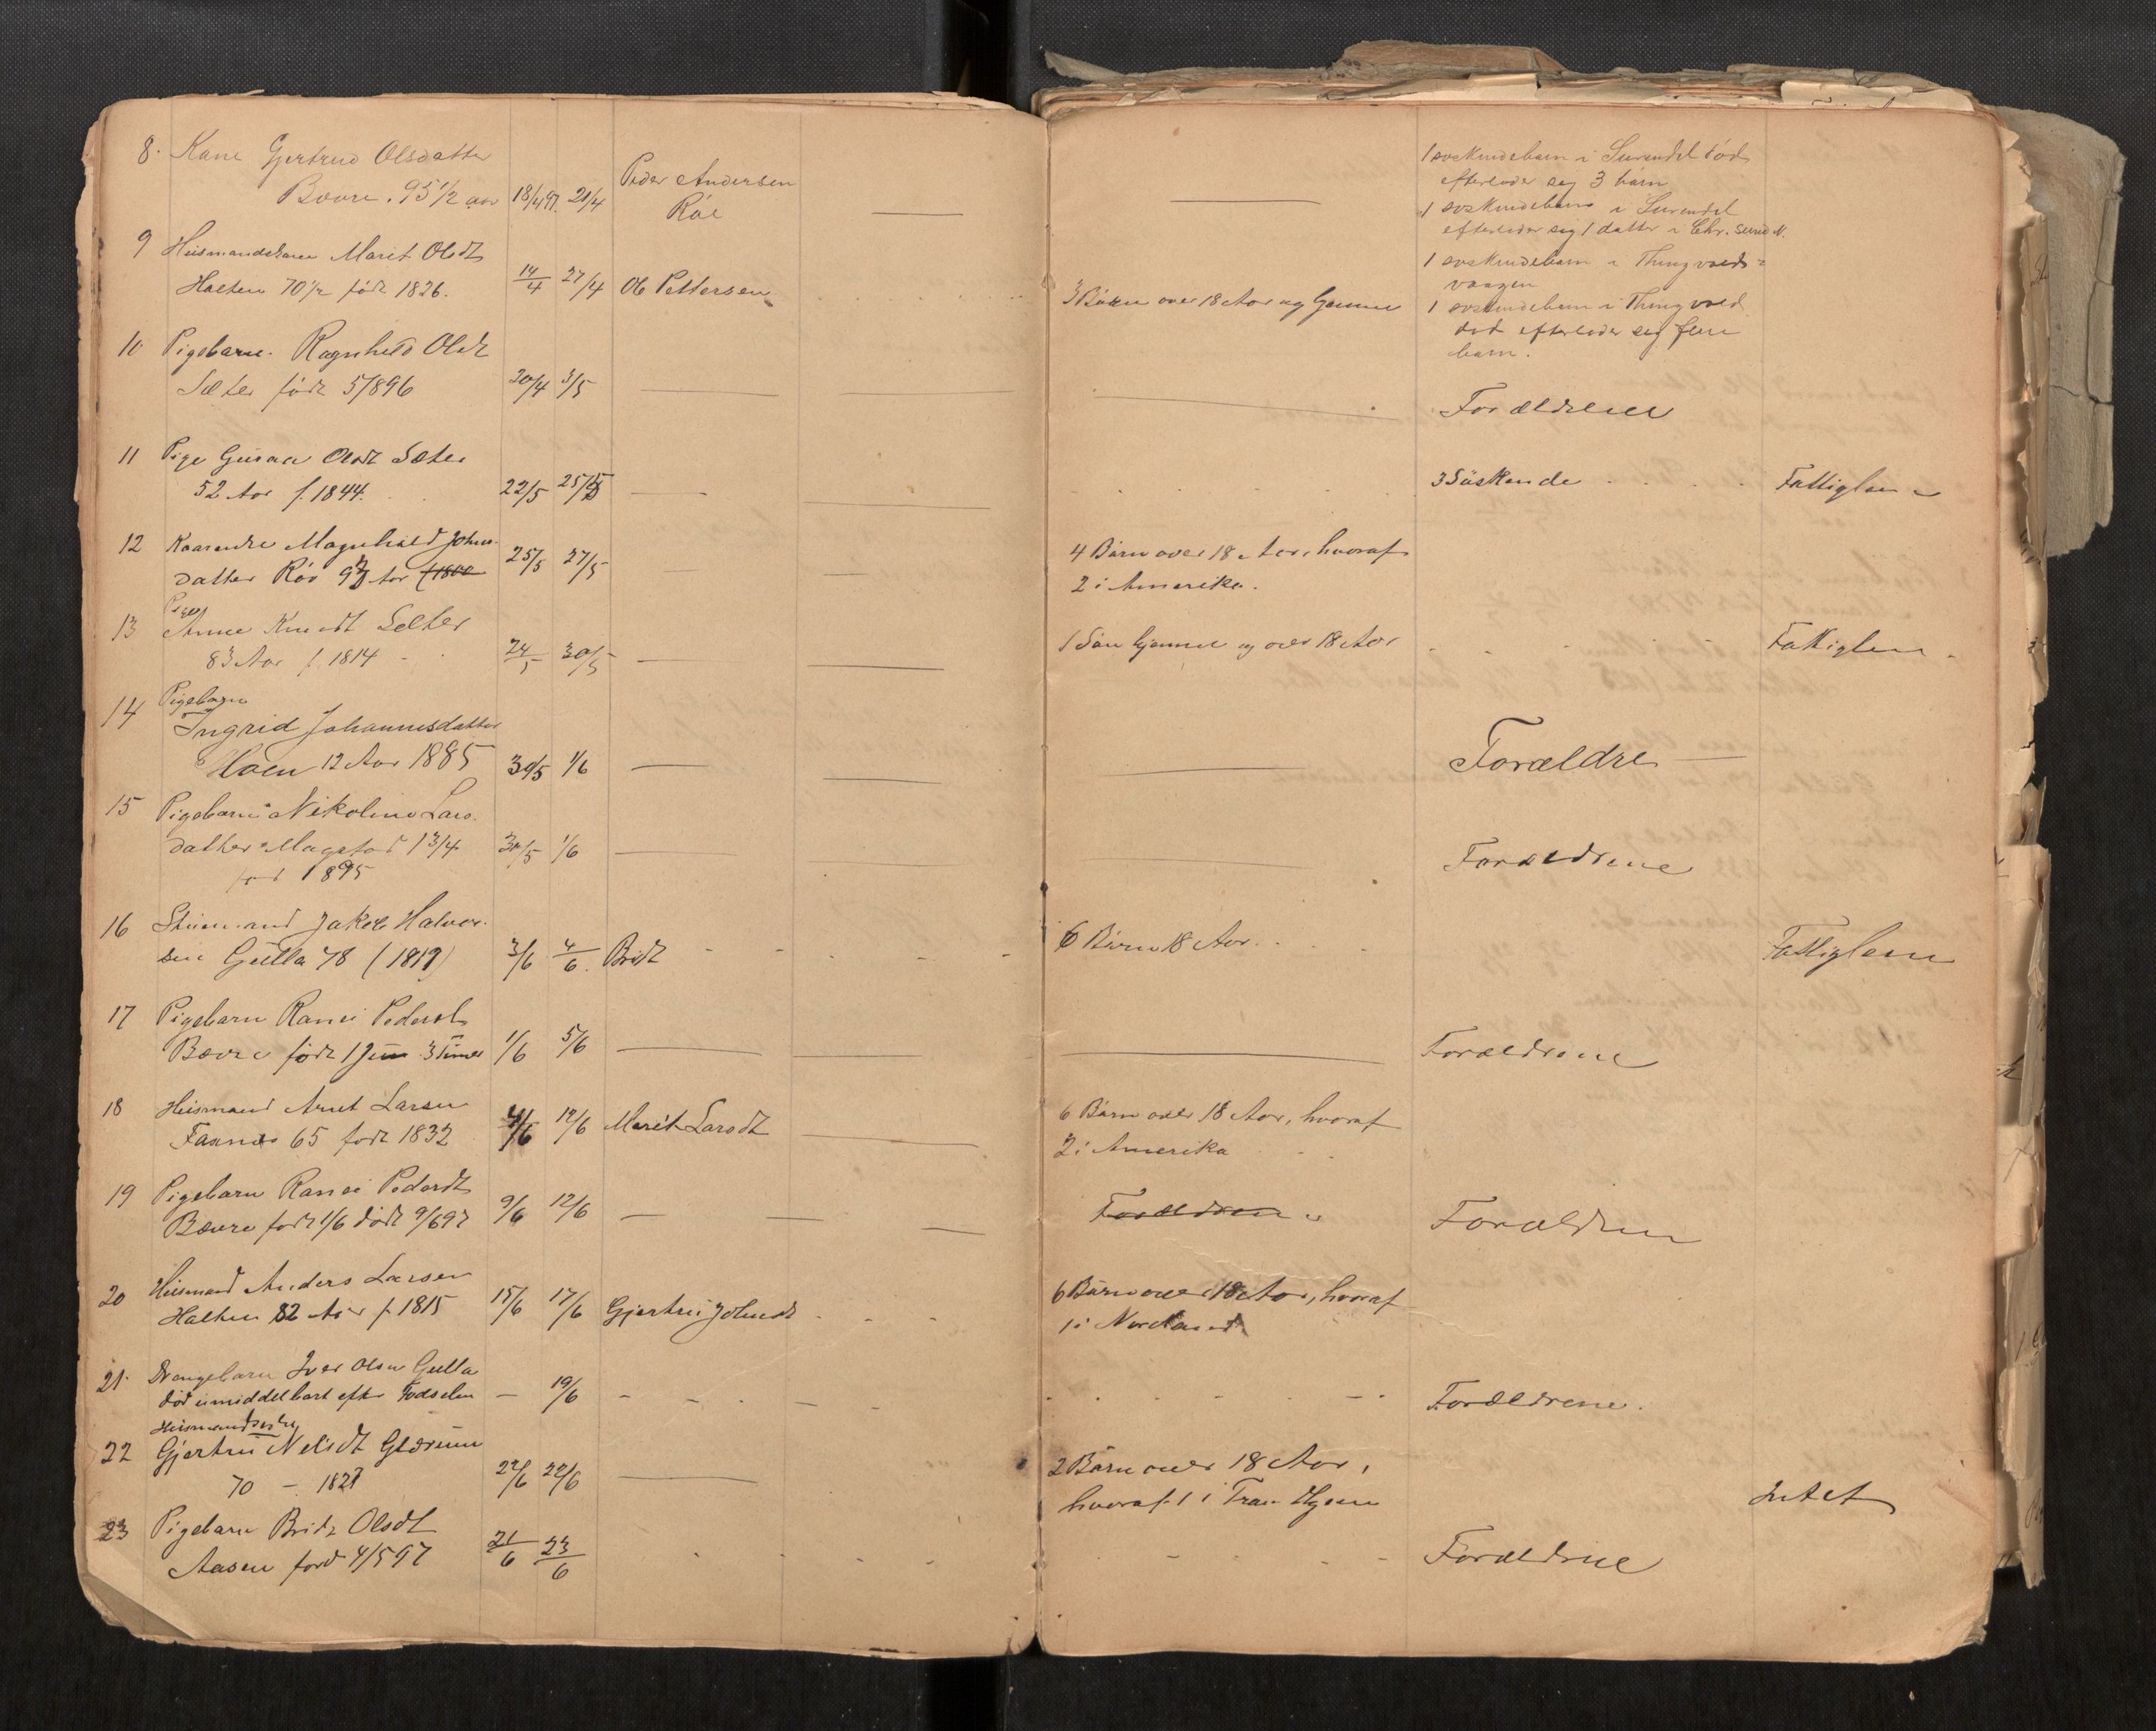 8. Kone Gjertrud Olsdatter
Bævre. 95 1/2 aar 18/4 97. 21/4 Peder Andersen
Röe
1 söskendebarn i Surendal död
efterlader seg 3 barn
1 söskendebarn i Surendal
efterlader sig 1 datter i Chr. sund N.
1 söskendebarn i Thingvold-
vaagen
1 söskendebarn i Thingvold
död efterlader seg flere
barn.
9 Huusmandskone Marit Olsdt
Halten 70 1/2 födt 1826. 14/4 27/4 Ole Pettersen
3 Börn over 18 Aar og Gamme
10 Pigebarn. Ragnhild Olsdt
Sæter födt 5/896 30/4 3/5
Forældrene
11 Pige Guraa Olsdt Sæter
52 Aar f. 1844. 22/5 25/5
3 Söskende Fattiglem
12 Kaarenke Magnhild Johns-
datter Röv 93 Aar f 1800 25/5 27/5
4 Börn over 18 Aar, hvoraf
2 i Amerika.
Pige
13 Anne Knudt Sæter
83 Aar f. 1814 24/5 30/5
1 Sön Gammel og over 18 Aar Fattiglem
Pigebarn
14 Ingrid Johannesdatter
Hoen 12 Aar 1885 30/5 1/6
Forældre
15 Pigebarn Nikoline Lars-
datter Mogstad 1 3/4 30/5 1/6
född 1895
Forældrene
16 Stuemand Jakob Halvor-
sen Gulla 78 (1819) 3/6 4/6 Brit
6 Börn 18 Aar. Fattiglem
17 Pigebarn Ranei Pedersdt
Bævre födt 1 Juni 3 Timer 1/6 5/6
Forældrene
18 Huismand Arnt Larsen
Faxnes 65 födt 1832 4/6 12/6 Marit Larsdt
6 Börn over 18 Aar, hvoraf
2 i Amerika
19 Pigebarn Ranei Pedersdt
Bævre födt 1/6 dödt 9/697 9/6 12/6
Forældrene Forældrene
20 Huismand Anders Larsen
Halten 82 Aar f. 1815 15/6 17/6 Gjertru Johnsdt
6 Börn over 18 Aar, hvoraf
1 i Nordland
21. Drengebarn Iver Olsen Gulla
död imiddelbart efter Födselen – 19/6
Forældrene.
Huismandsenke
22 Gjertru Nelsdt Glærum
70 – 1827 22/6 22/6
2 Börn over 18 Aar,
hvoraf 1 i Trondhjem Intet
23 Pigebarn Brit Olsdt
Aasen född 4/597 21/6 23/6
Forældrene